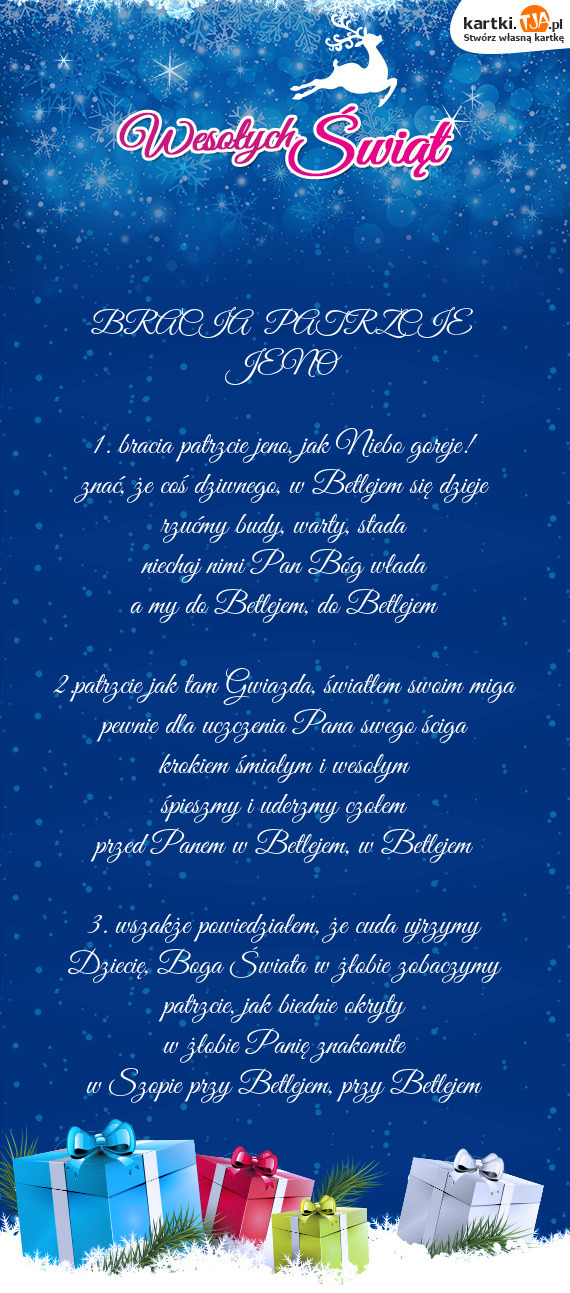 kartki.TJA.pl
Stwórz własną kartkę
Wesołych Świąt
BRACIA PATRZCIE
JENO
1. bracia patrzcie jeno, jak Niebo goreje!
znać, że coś dziwnego, w Betlejem się dzieje
rzućmy budy, warty, stada
niechaj nimi Pan Bóg włada
a my do Betlejem, do Betlejem
2.patrzcie jak tam Gwiazda, światłem swoim miga
pewnie dla uczczenia Pana swego ściga
krokiem śmiałym i wesołym
śpieszmy i uderzmy czołem
przed Panem w Betlejem, w Betlejem
3. wszakże powiedziałem, że cuda ujrzymy
Dziecię, Boga Świata w żłobie zobaczymy
patrzcie, jak biednie okryty
w żłobie Panię znakomite
w Szopie przy Betlejem, przy Betlejem